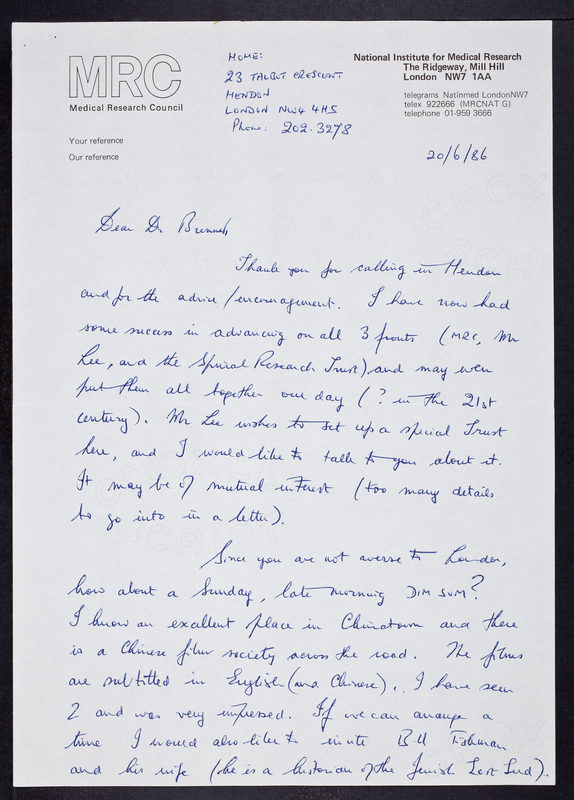 MRC
Medical Research Council
HOME:
23 TALBOT CRESCENT
HENDON
LONDON NW4 4HS
Phone: 202.3278
National Institute for Medical Research
The Ridgeway, Mill Hill
London NW7 1AA
telegrams Natinmed LondonNW7
telex 922666 (MRCNAT G)
telephone 01-959 3666
Your reference
Our reference
20/6/86
Dear Dr
Thank you for calling in Hendon
and for the advice/encouragement. I have now had
some success in advancing on all 3 fronts (MRC, Mr
Lee, and the Spinal Research Trust) and may even
put them all together one day (? in the 21st
century). Mr Lee wishes to set up a special Trust
here, and I would like to talk to you about it.
It may be of mutual interest (too many details
to go into in a letter).
Since you are not averse to London,
how about a Sunday, late morning DIM SUM?
I know an excellent place in Chinatown and there
is a Chinese film society across the road. The films
are subtitled in English (and Chinese). I have seen
2 and was very impressed. If we can arrange a
time I would also like to invite Bill Fishman
and his wife (he is a historian of the Jewish East End).